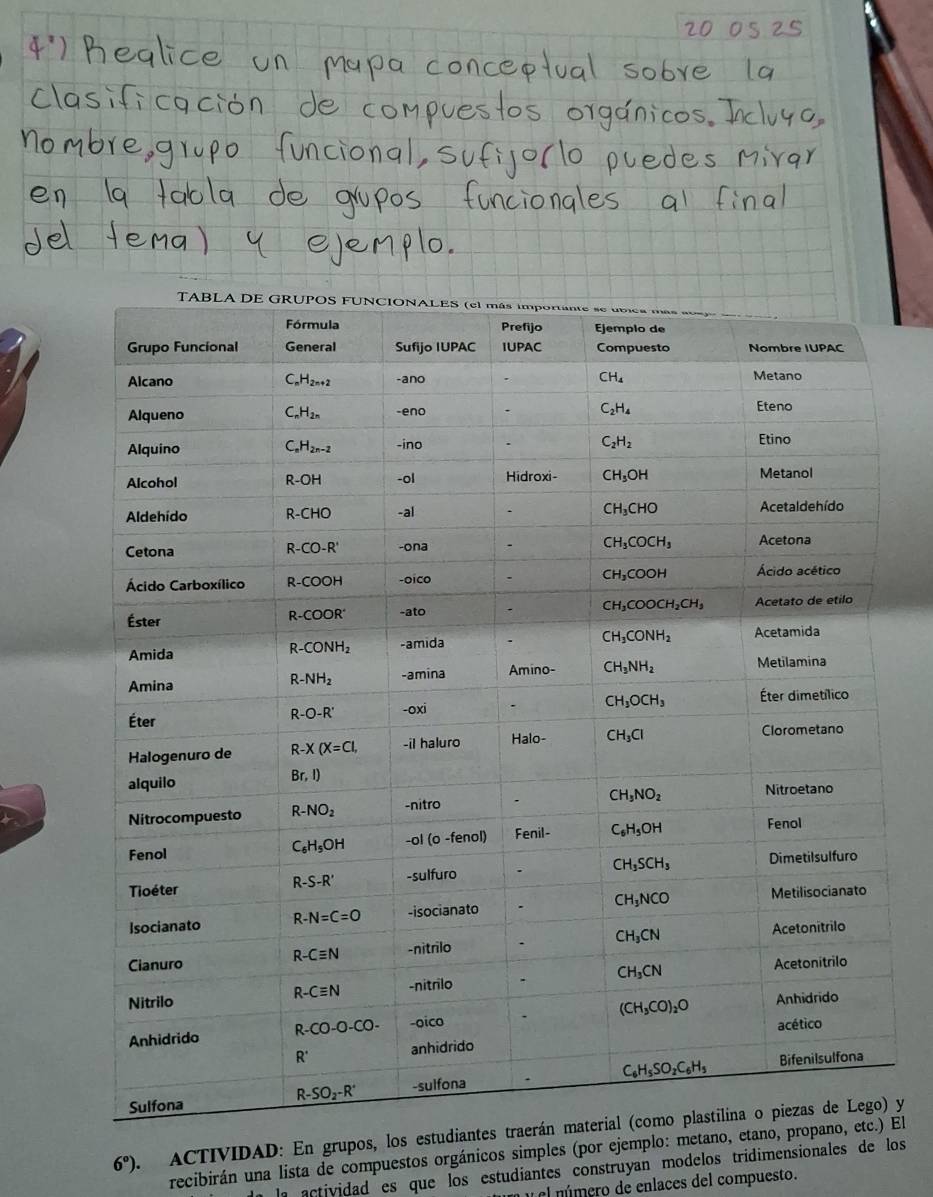 20 05 25
4°) Realice un mapa conceptual sobre la
clasificación de compuestos orgánicos. Incluya,
nombre, grupo funcional, sufijo(lo puedes mirar
en la tabla de grupos funcionales al final
del tema) y ejemplo.
TABLA DE GRUPOS FUNCIONALES (el más importante se ubica más
Grupo Funcional Fórmula General Sufijo IUPAC Prefijo IUPAC Ejemplo de Compuesto Nombre IUPAC
Alcano CₙH₂ₙ₊₂ -ano - CH₄ Metano
Alqueno CₙH₂ₙ -eno - C₂H₄ Eteno
Alquino CₙH₂ₙ₋₂ -ino - C₂H₂ Etino
Alcohol R-OH -ol Hidroxi- CH₃OH Metanol
Aldehído R-CHO -al - CH₃CHO Acetaldehído
Cetona R-CO-R' -ona - CH₃COCH₃ Acetona
Ácido Carboxílico R-COOH -oico - CH₃COOH Ácido acético
Éster R-COOR' -ato - CH₃COOCH₂CH₃ Acetato de etilo
Amida R-CONH₂ -amida - CH₃CONH₂ Acetamida
Amina R-NH₂ -amina Amino- CH₃NH₂ Metilamina
Éter R-O-R' -oxi - CH₃OCH₃ Éter dimetílico
Halogenuro de alquilo R-X (X=Cl, Br, I) -il haluro Halo- CH₃Cl Clorometano
Nitrocompuesto R-NO₂ -nitro - CH₃NO₂ Nitroetano
Fenol C₆H₅OH -ol (o -fenol) Fenil- C₆H₅OH Fenol
Tioéter R-S-R' -sulfuro - CH₃SCH₃ Dimetilsulfuro
Isocianato R-N=C=O -isocianato - CH₃NCO Metilisocianato
Cianuro R-C≡N -nitrilo - CH₃CN Acetonitrilo
Nitrilo R-C≡N -nitrilo - CH₃CN Acetonitrilo
Anhidrido R-CO-O-CO-R' -oico anhidrido - (CH₃CO)₂O Anhidrido acético
Sulfona R-SO₂-R' -sulfona - C₆H₅SO₂C₆H₅ Bifenilsulfona
6º). ACTIVIDAD: En grupos, los estudiantes traerán material (como plastilina o piezas de Lego) y
recibirán una lista de compuestos orgánicos simples (por ejemplo: metano, etano, propano, etc.) El
la actividad es que los estudiantes construyan modelos tridimensionales de los
y el número de enlaces del compuesto.